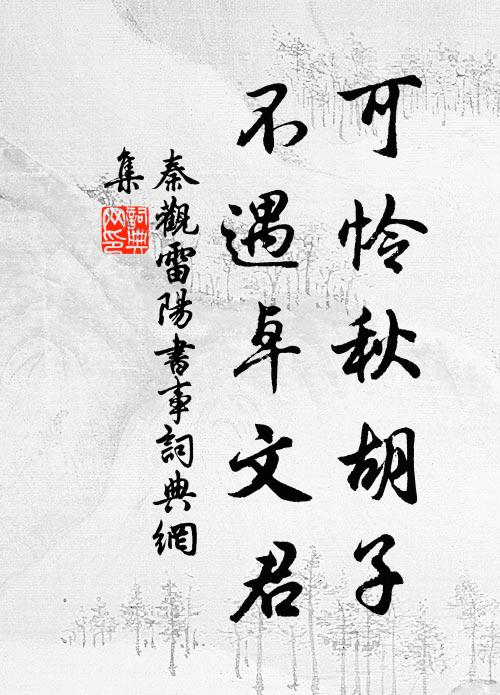 可怜秋胡子
不遇卓文君
秦觀雷陽書事詞典網
集
詞典網印